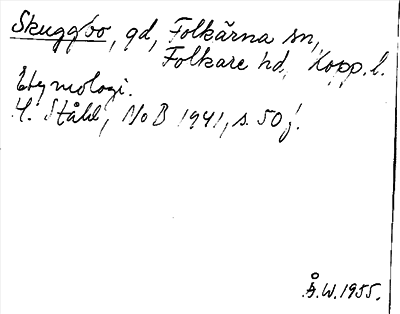 Skuggbo, gd, Folkärna sn,
Folkare hd, Kopp. l.
Etymologi.
H. Ståhl, NoB 1941, s. 50 f.
Å.W. 1955.